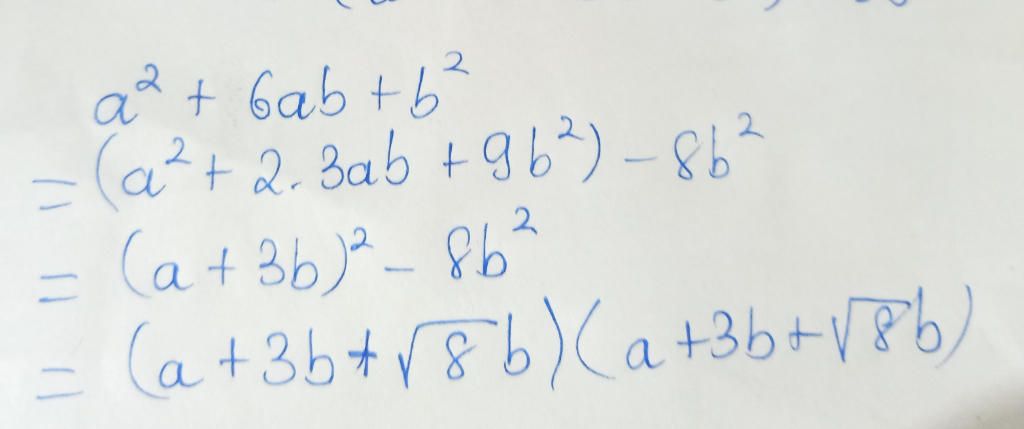 a² + 6ab + b²
= (a² + 2. 3ab + 9b²) - 8b²
= (a + 3b)² - 8b²
= (a + 3b + √8 b)(a + 3b + √8 b)